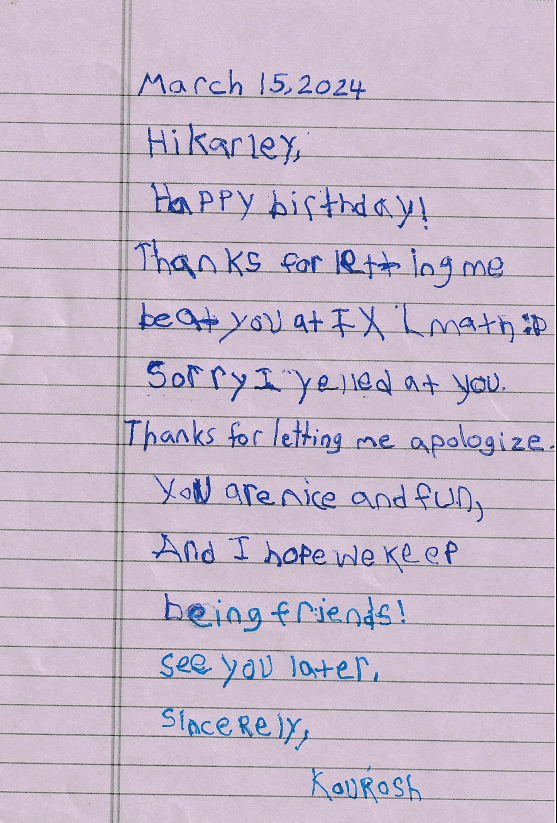 March 15, 2024
Hi Karley,
Happy birthday!
Thanks for letting me
beat you at IXL math :D
Sorry I yelled at you.
Thanks for letting me apologize.
You are nice and fun,
And I hope we keep
being friends!
see you later,
Sincerely,
Kourosh